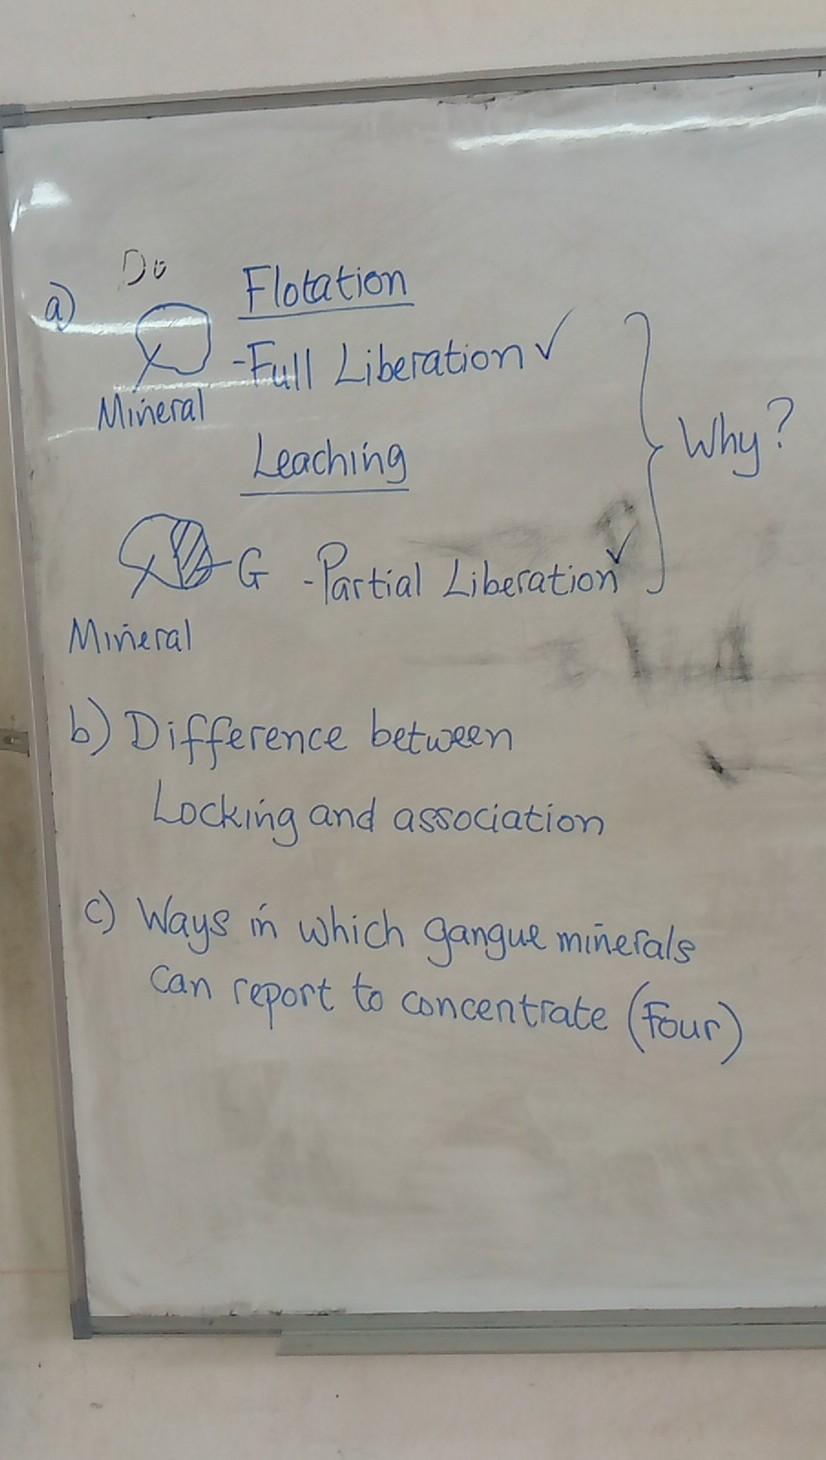 Do
a) Flotation
Mineral -Full Liberation ✓
Leaching
Why?
G -Partial Liberation ✓
Mineral
b) Difference between
Locking and association
c) Ways in which gangue minerals
can report to concentrate (Four)